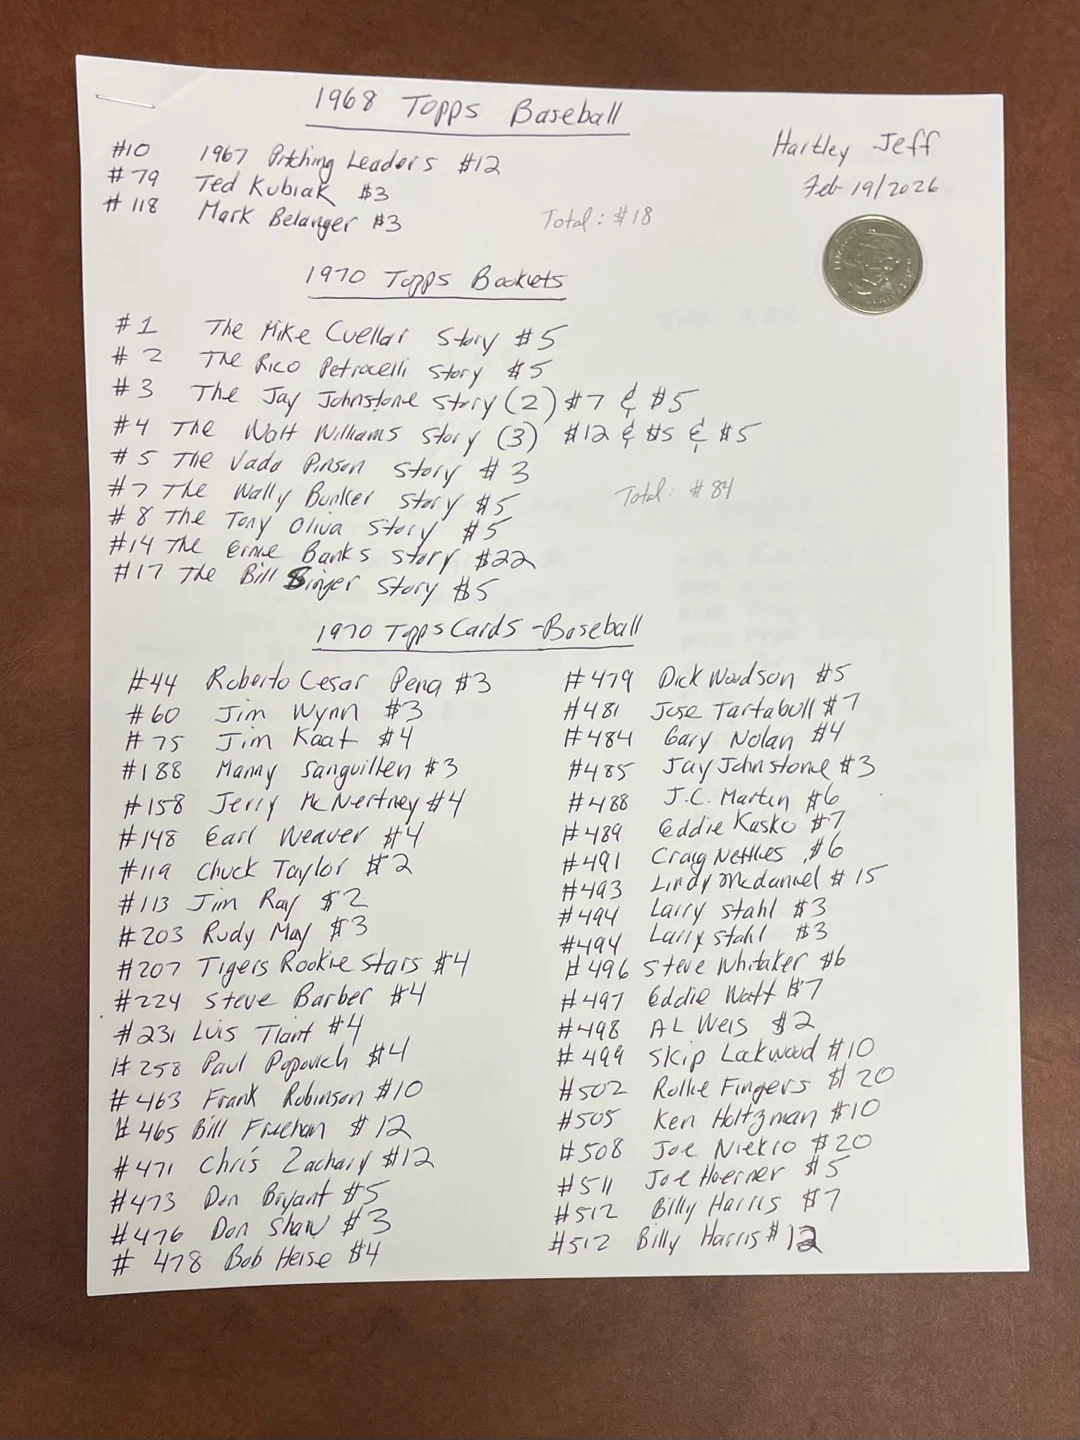 1968 Topps Baseball
Hartley Jeff
Feb 19/2026
#10 1967 Pitching Leaders $12
#79 Ted Kubiak $3
#118 Mark Belanger $3
Total: $18
1970 Topps Booklets
#1 The Mike Cuellar Story $5
#2 The Rico Petrocelli Story $5
#3 The Jay Johnstone Story (2) $7 & $5
#4 The Walt Williams Story (3) $12 & $5 & $5
#5 The Vada Pinson Story $3
#7 The Wally Bunker Story $5
Total: $84
#8 The Tony Oliva Story $5
#14 The Ernie Banks Story $22
#17 The Bill Singer Story $5
1970 Topps Cards - Baseball
#44 Roberto Cesar Pena $3
#60 Jim Wynn $3
#75 Jim Kaat $4
#188 Manny Sanguillen $3
#158 Jerry McNertney $4
#148 Earl Weaver $4
#119 Chuck Taylor $2
#113 Jim Ray $2
#203 Rudy May $3
#207 Tigers Rookie Stars $4
#224 Steve Barber $4
#231 Luis Tiant $4
#258 Paul Popovich $4
#463 Frank Robinson $10
#465 Bill Freehan $12
#471 Chris Zachary $12
#473 Don Bryant $5
#476 Don Shaw $3
#478 Bob Heise $4
#479 Dick Woodson $5
#481 Jose Tartabull $7
#484 Gary Nolan $4
#485 Jay Johnstone $3
#488 J.C. Martin $6
#489 Eddie Kasko $7
#491 Craig Nettles $6
#493 Lindy Mcdaniel $15
#494 Larry Stahl $3
#494 Larry Stahl $3
#496 Steve Whitaker $6
#497 Eddie Watt $7
#498 AL Weis $2
#499 Skip Lockwood $10
#502 Rollie Fingers $20
#505 Ken Holtzman $10
#508 Joe Niekro $20
#511 Joe Hoerner $5
#512 Billy Harris $7
#512 Billy Harris $12